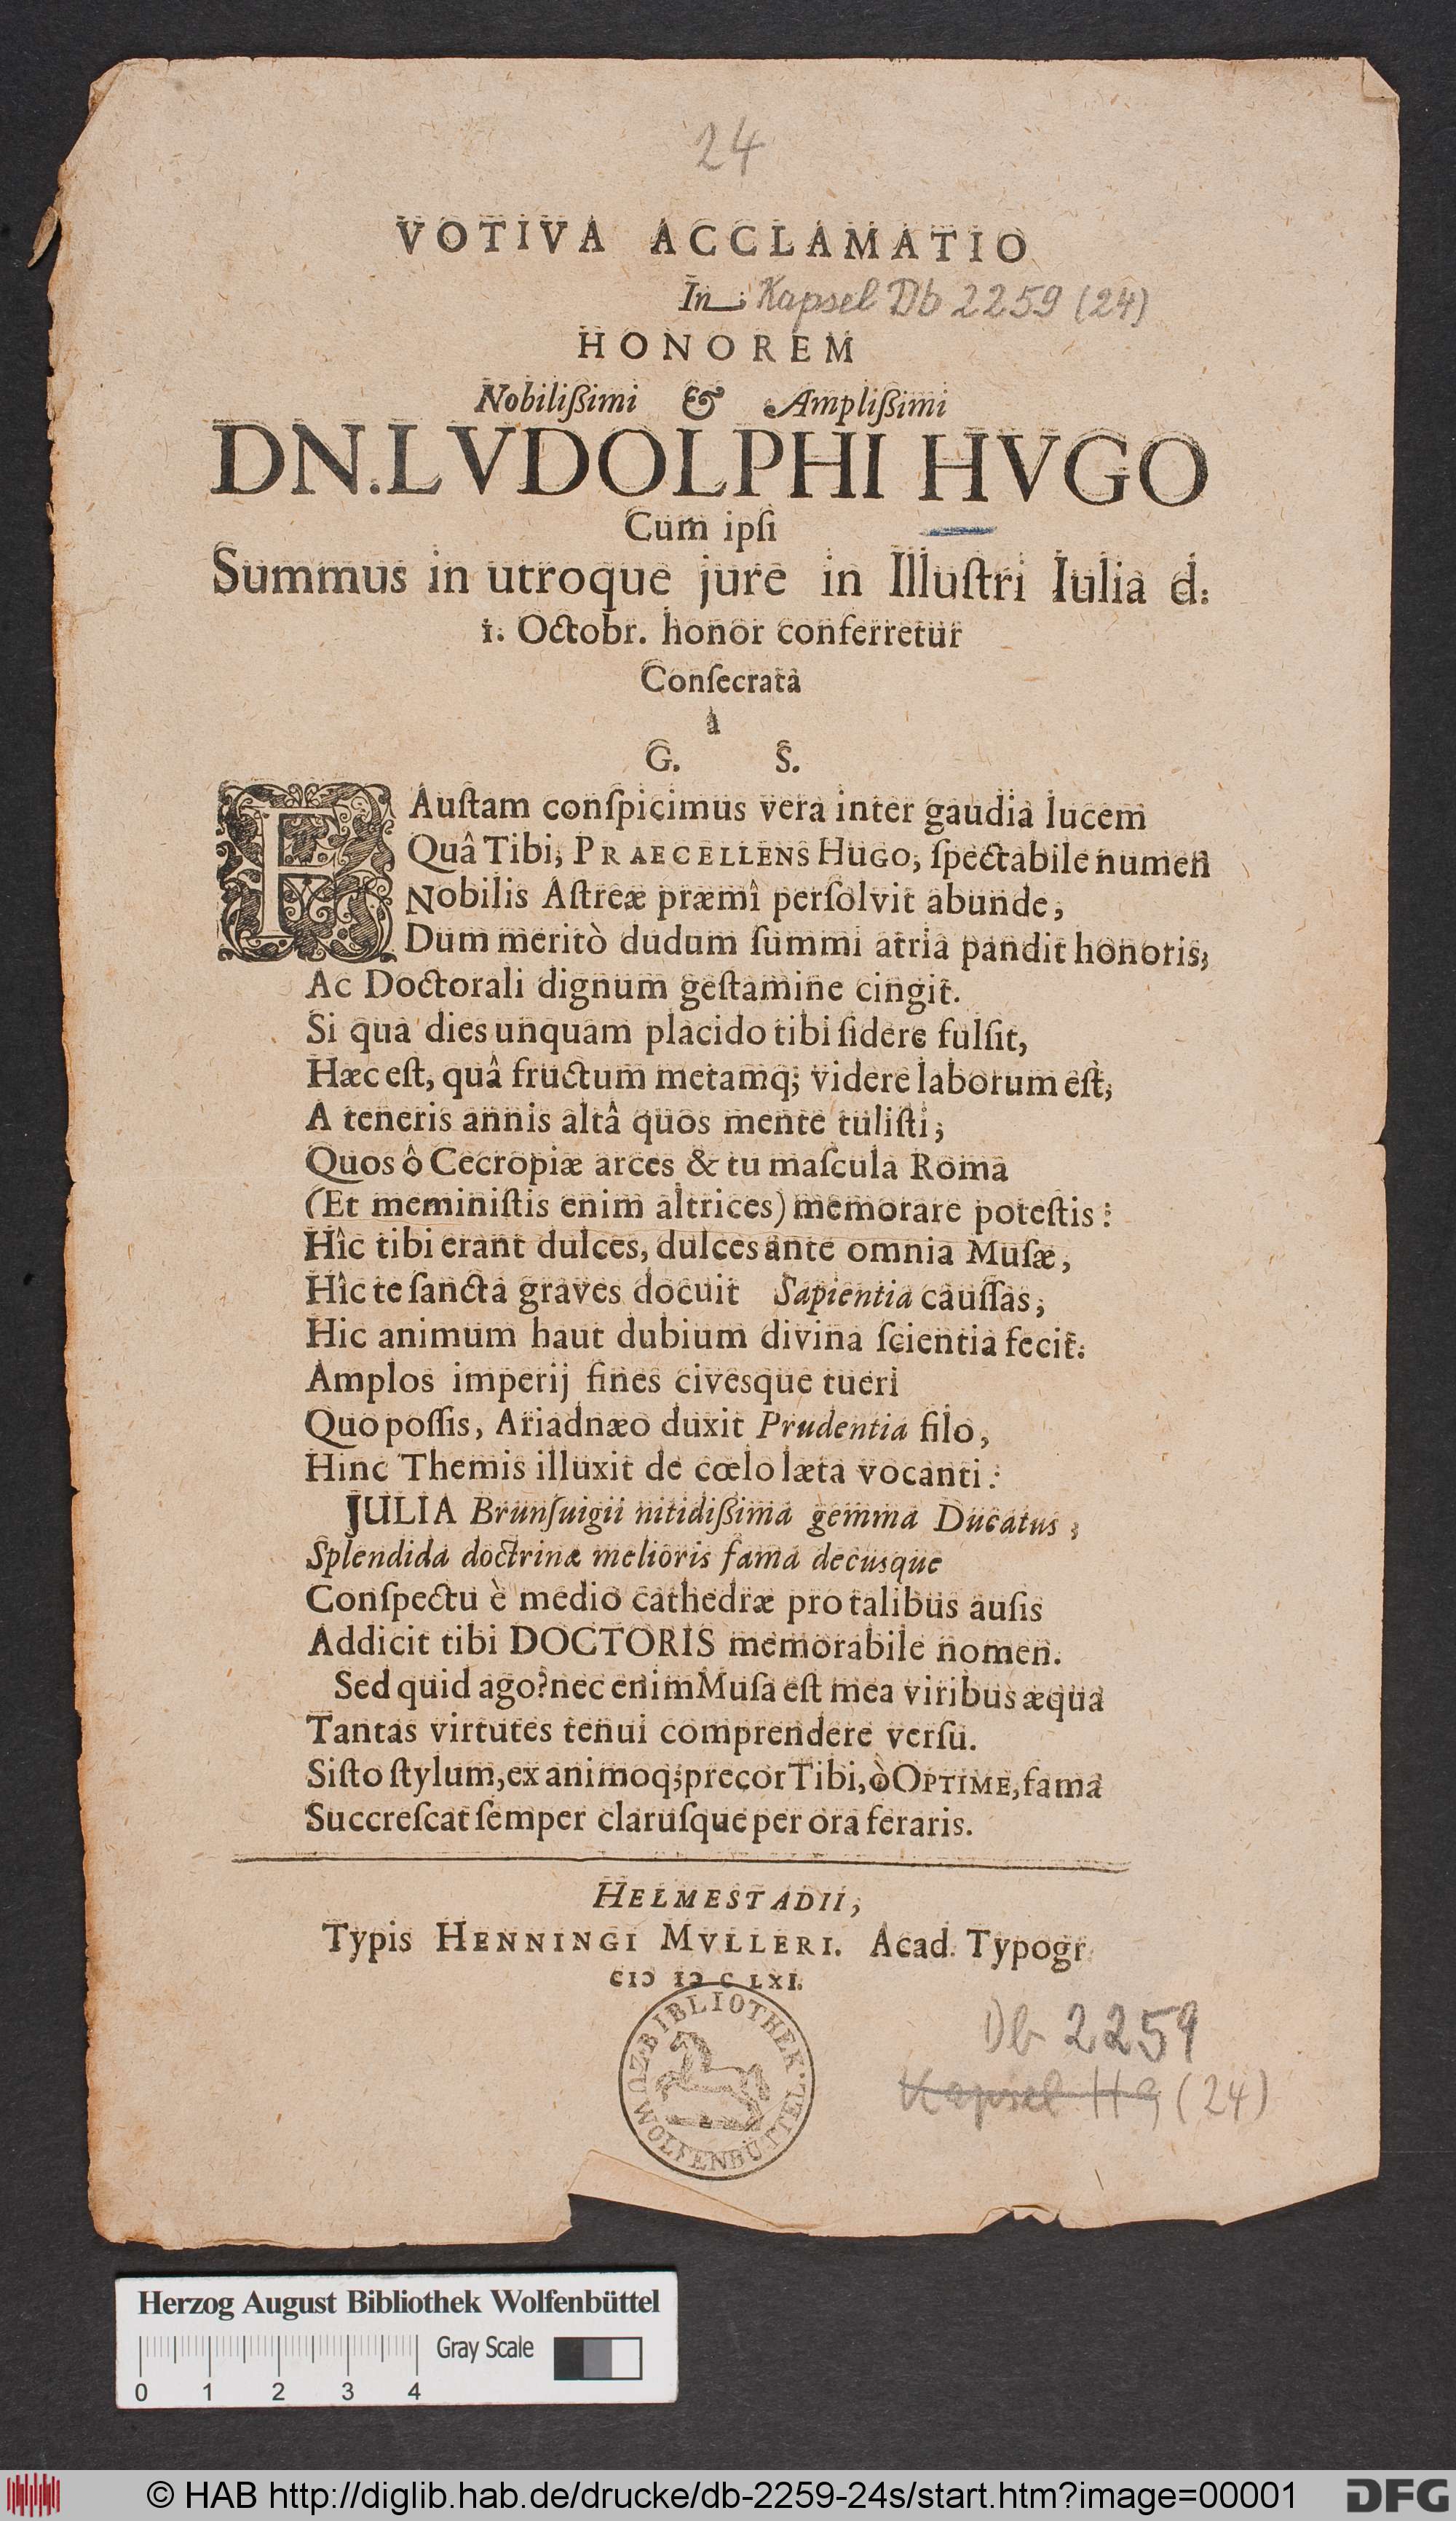 24
VOTIVA ACCLAMATIO
In
Kapsel Db 2259 (24)
HONOREM
Nobilißimi & Amplißimi
DN. LVDOLPHI HVGO
Cum ipſi
Summus in utroque jure in Illuſtri Iulia d.
1. Octobr. honor conferretur
Conſecrata
à
G. S.
FAuſtam conſpicimus vera inter gaudia lucem
Quâ Tibi, PRAECELLENS HUGO, ſpectabile numen
Nobilis Aſtreæ præmî perſolvit abunde,
Dum meritò dudum ſummi atria pandit honoris,
Ac Doctorali dignum geſtamine cingit.
Si qua dies unquam placido tibi ſidere fulſit,
Hæc eſt, quâ fructum metamq; videre laborum eſt,
A teneris annis altâ quos mente tuliſti,
Quos ô Cecropiæ arces & tu maſcula Roma
(Et meminiſtis enim altrices) memorare poteſtis:
Hîc tibi erant dulces, dulces ante omnia Muſæ,
Hîc te ſancta graves docuit Sapientia cauſſas,
Hic animum haut dubium divina ſcientia fecit.
Amplos imperij fines civesque tueri
Quo poſſis, Ariadnæo duxit Prudentia filo,
Hinc Themis illuxit de cœlo læta vocanti:
JULIA Brunſuigii nitidißima gemma Ducatus,
Splendida doctrinæ melioris fama decusque
Conſpectu è medio cathedræ pro talibus auſis
Addicit tibi DOCTORIS memorabile nomen.
Sed quid ago? nec enim Muſa eſt mea viribus æqua
Tantas virtutes tenui comprendere verſu.
Siſto ſtylum, ex animoq; precor Tibi, ò OPTIME, fama
Succreſcat ſemper claruſque per ora feraris.
HELMESTADII,
Typis HENNINGI MVLLERI. Acad. Typogr.
CIƆ IƆ C LXI.
BIBLIOTHEK ZU WOLFENBÜTTEL
Db 2259
Kapsel (24)
Herzog August Bibliothek Wolfenbüttel
Gray Scale
0 1 2 3 4
© HAB http://diglib.hab.de/drucke/db-2259-24s/start.htm?image=00001
DFG